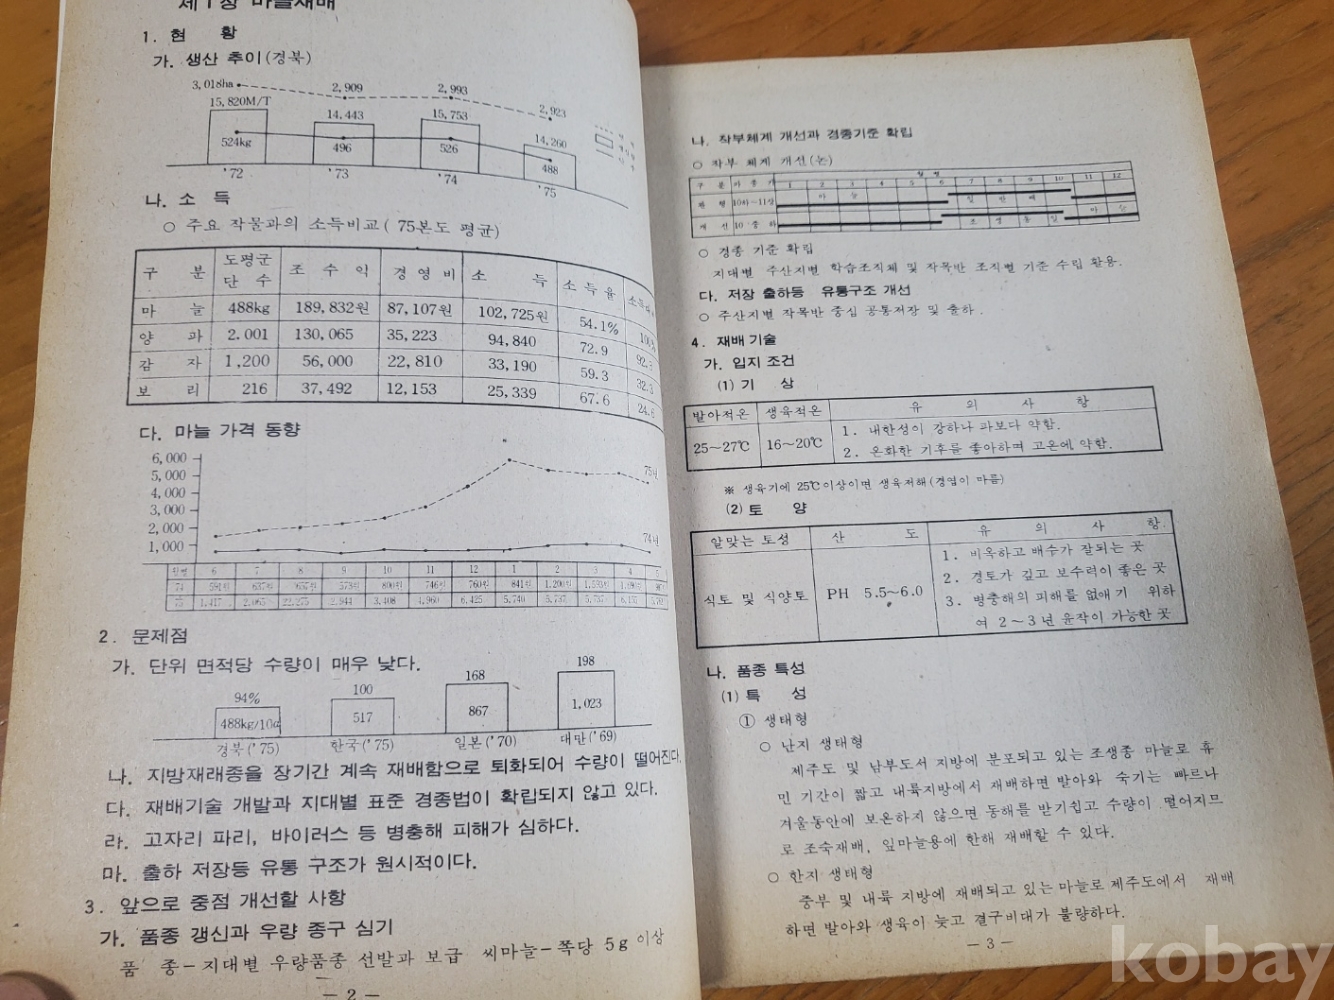 제1장 마늘재배
1. 현 황
가. 생산 추이(경북)
3,018ha 2,909 2,993 2,923
15,820M/T 14,443 15,753 14,260
524kg 496 526 488
'72 '73 '74 '75
나. 소 득
○ 주요 작물과의 소득비교( 75본도 평균)
구 분 도평균 단 수 조 수 익 경 영 비 소 득 소 득 율
마 늘 488kg 189,832원 87,107원 102,725원 54.1%
양 파 2.001 130,065 35,223 94,840 72.9
감 자 1,200 56,000 22,810 33,190 59.3 32.3
보 리 216 37,492 12,153 25,339 67.6 24.6
다. 마늘 가격 동향
6,000
5,000
4,000
3,000
2,000
1,000
75년
74년
월별 6 7 8 9 10 11 12 1 2 3 4 5
74
75 1,417 2,065 3,408 4,960 6,425 5,740 5,737
2. 문제점
가. 단위 면적당 수량이 매우 낮다.
94% 100 168 198
488kg/10a 517 867 1.023
경북('75) 한국('75) 일본('70) 대만('69)
나. 지방재래종을 장기간 계속 재배함으로 퇴화되어 수량이 떨어진다.
다. 재배기술 개발과 지대별 표준 경종법이 확립되지 않고 있다.
라. 고자리 파리, 바이러스 등 병충해 피해가 심하다.
마. 출하 저장등 유통 구조가 원시적이다.
3. 앞으로 중점 개선할 사항
가. 품종 갱신과 우량 종구 심기
품 종-지대별 우량품종 선발과 보급 씨마늘-쪽당 5g 이상
- 2 -
나. 작부체계 개선과 경종기준 확립
○ 작부 체계 개선(논)
구 분 1 2 3 4 5 6 7 8 9 10 11 12
관 행 10하~11상 마 늘
개 선 10 중 하 마 늘
○ 경종 기준 확립
지대별 주산지별 학습조직체 및 작목반 조직별 기준 수립 활용.
다. 저장 출하등 유통구조 개선
○ 주산지별 작목반 중심 공동저장 및 출하.
4. 재배 기술
가. 입지 조건
(1) 기 상
발아적온 생육적온 유 의 사 항
25~27℃ 16~20℃ 1. 내한성이 강하나 파보다 약함.
2. 온화한 기후를 좋아하며 고온에 약함.
※ 생육기에 25℃이상이면 생육저해(경엽이 마름)
(2) 토 양
알맞는 토성 산 도 유 의 사 항.
식토 및 식양토 PH 5.5~6.0 1. 비옥하고 배수가 잘되는 곳
2. 경토가 깊고 보수력이 좋은 곳
3. 병충해의 피해를 없애기 위하
여 2~3년 윤작이 가능한 곳
나. 품종 특성
(1) 특 성
① 생태형
○ 난지 생태형
제주도 및 남부도서 지방에 분포되고 있는 조생종 마늘로 휴
면 기간이 짧고 내륙지방에서 재배하면 발아와 숙기는 빠르나
겨울동안에 보온하지 않으면 동해를 받기쉽고 수량이 떨어지므
로 조숙재배, 잎마늘용에 한해 재배할 수 있다.
○ 한지 생태형
중부 및 내륙 지방에 재배되고 있는 마늘로 제주도에서 재배
하면 발아와 생육이 늦고 결구비대가 불량하다.
- 3 -
kobay